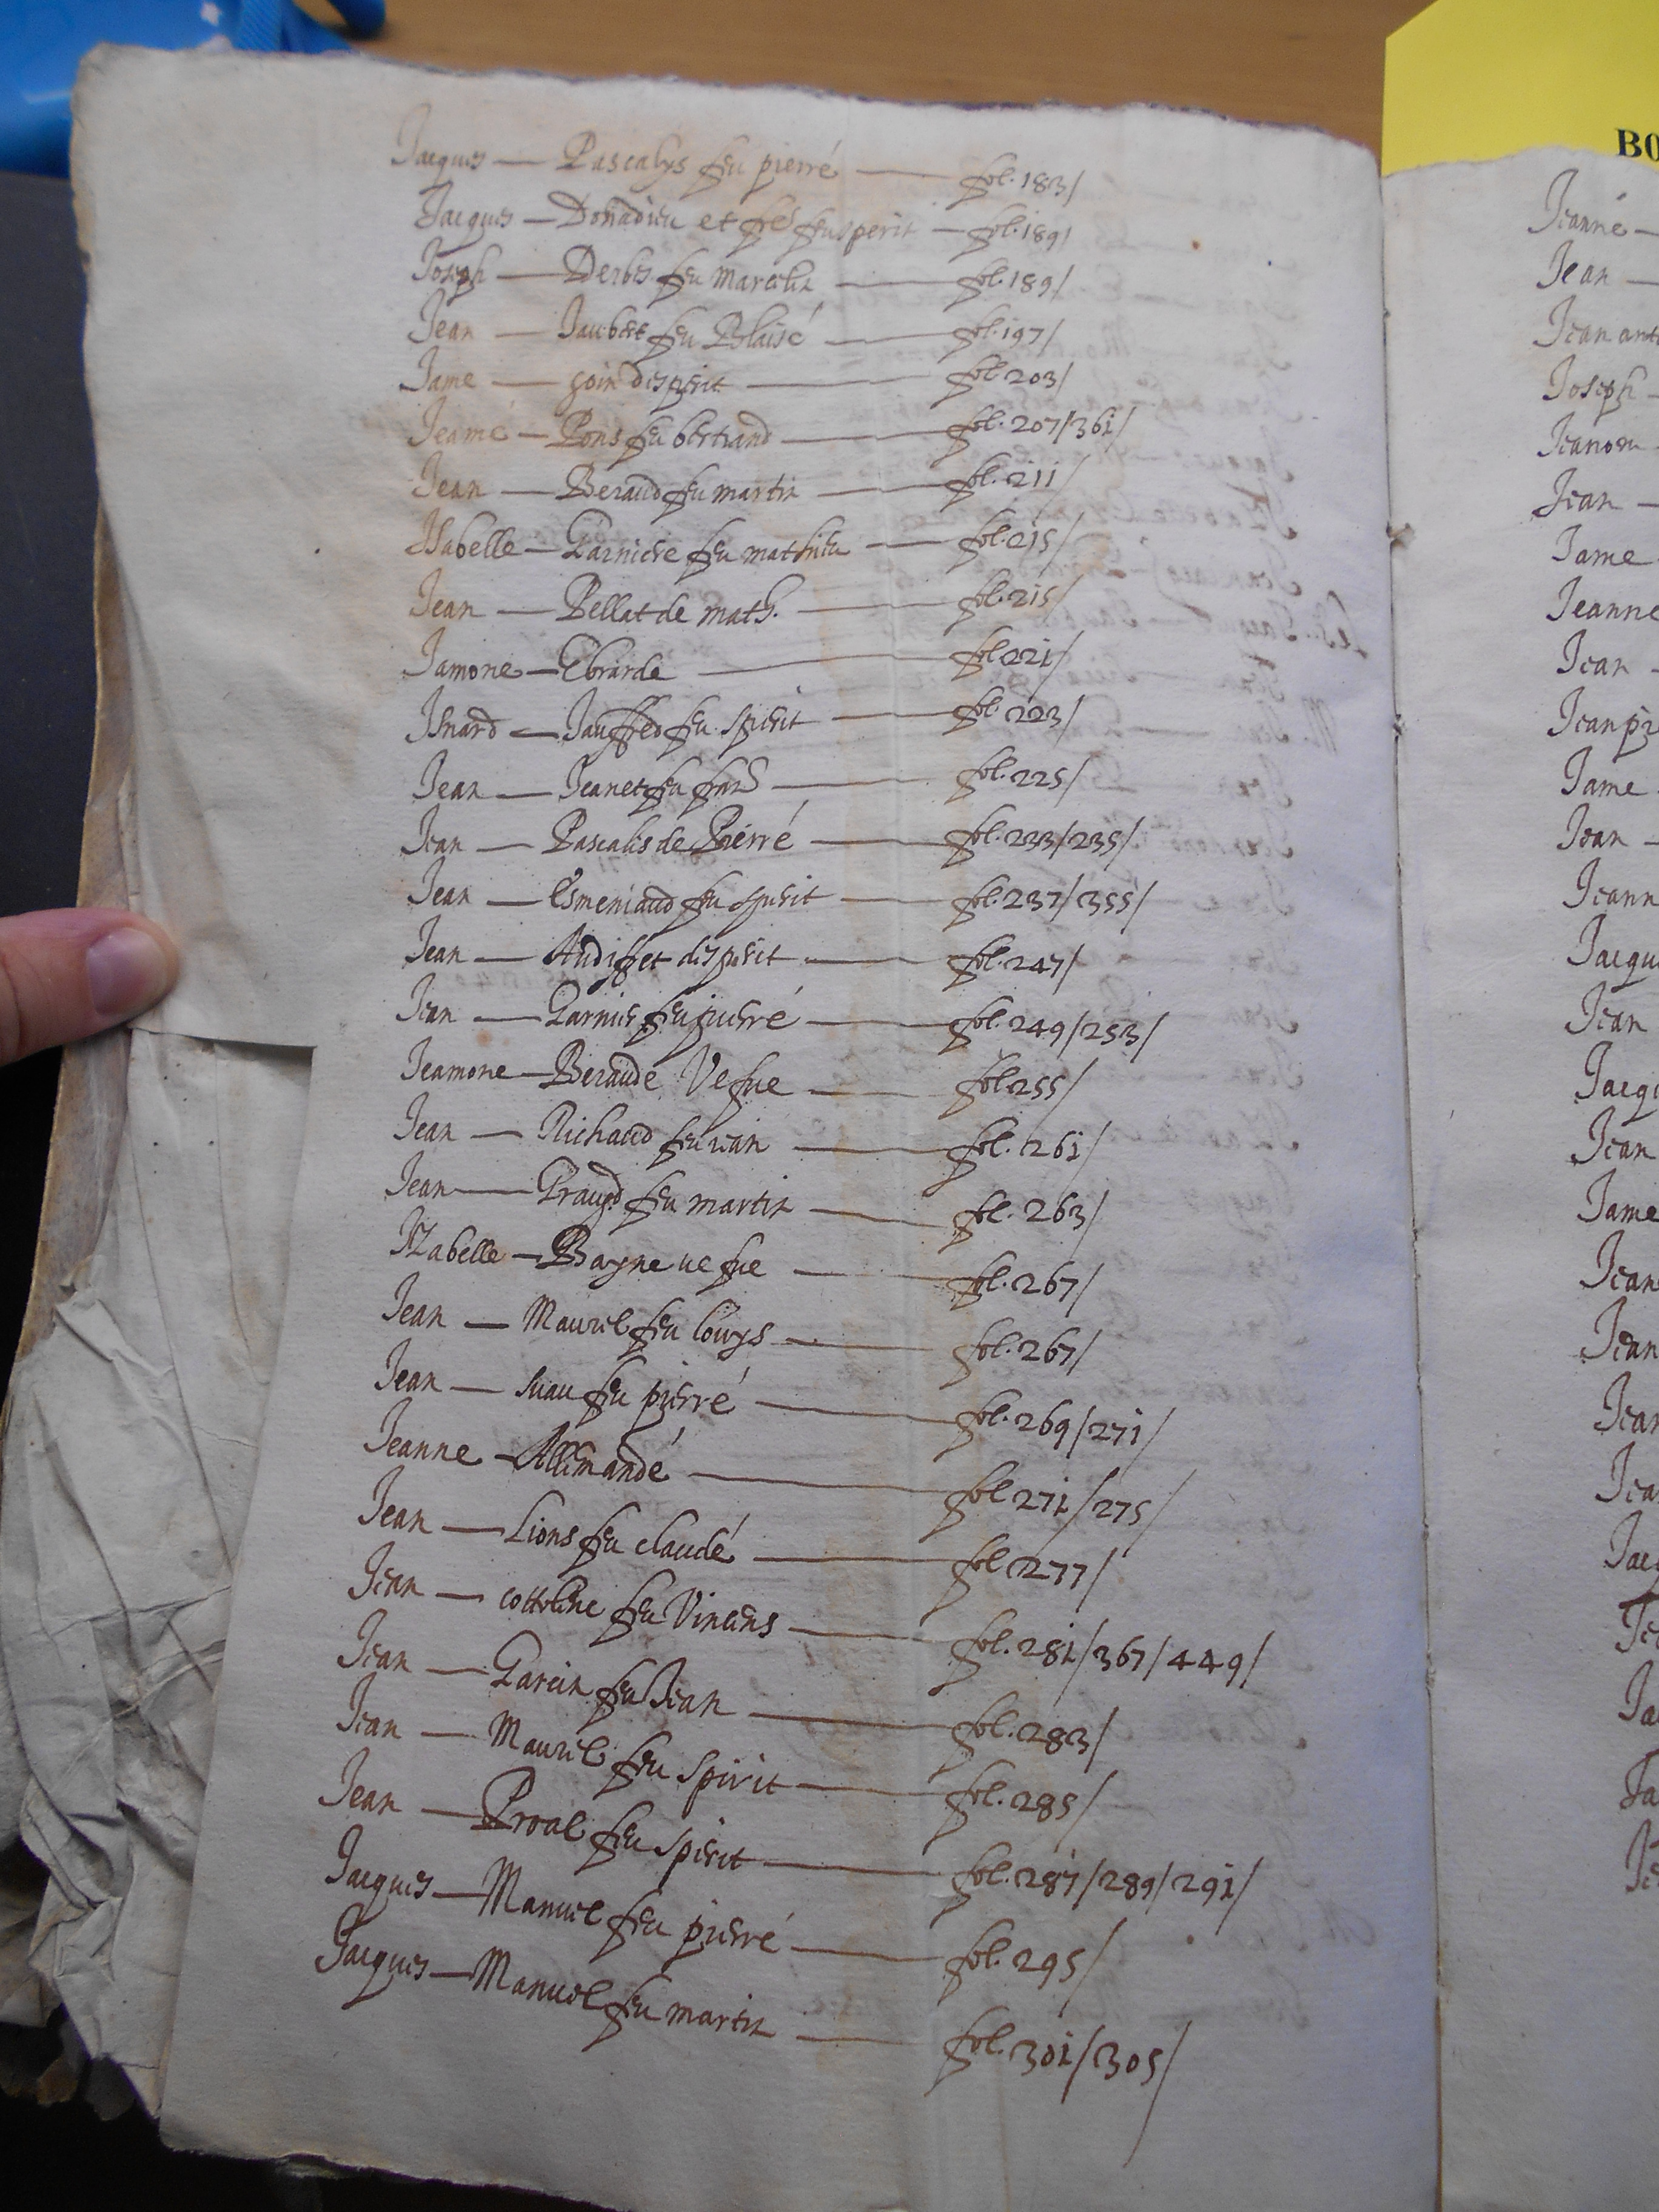 Jacques — Pascalys feu pierré — fol. 183/
Jacques — Donadieu et fres feu sperit — fol. 189/
Joseph — Derbes feu Marcelin — fol. 189/
Jean — Jaubert feu Blaisé — fol. 197/
Jame — goin desperit — fol. 203/
Jeame — Pons feu bertrand — fol. 207/361/
Jean — Beraud feu martin — fol. 211/
Isabelle — Garniere feu mathieu — fol. 215/
Jean — Bellat de math. — fol. 215/
Jamone — Ebrarde — fol 221/
Isnard — Jauffred feu sperit — fol. 223/
Jean — Jeanet feu — fol. 225/
Jean — Pascalis de Pierré — fol. 233/235/
Jean — Esmeniaud feu sperit — fol. 237/355/
Jean — Audiffet desperit — fol. 247/
Jean — Garnier feu pierré — fol. 249/253/
Jeamone — Beraude Vefue — fol 255/
Jean — Richaud feu jean — fol. 261/
Jean — feu martin — fol. 263/
IZabelle — Bayne uefue — fol. 267/
Jean — Maurel feu louys — fol. 267/
Jean — suau feu pierré — fol. 269/271/
Jeanne — Allemandé — fol 271/275/
Jean — Lions feu claudé — fol 277/
Jean — cottoline feu Vincens — fol. 281/367/449/
Jean — Garcin feu Jean — fol. 283/
Jean — Maurel feu Spirit — fol. 285/
Jean — Proal feu spirit — fol. 287/289/291/
Jacques — Manuel feu pierré — fol. 295/
Jacques — Manuel feu martin — fol. 301/305/
BO
Jeanné —
Jean —
Jean ant
Joseph —
Jean —
Jame
Jeanne
Jean
Jean pi
Jame
Jean —
Jeann
Jacqu
Jean
Jacq
Jean
Jame
Jean
Jean
Jean